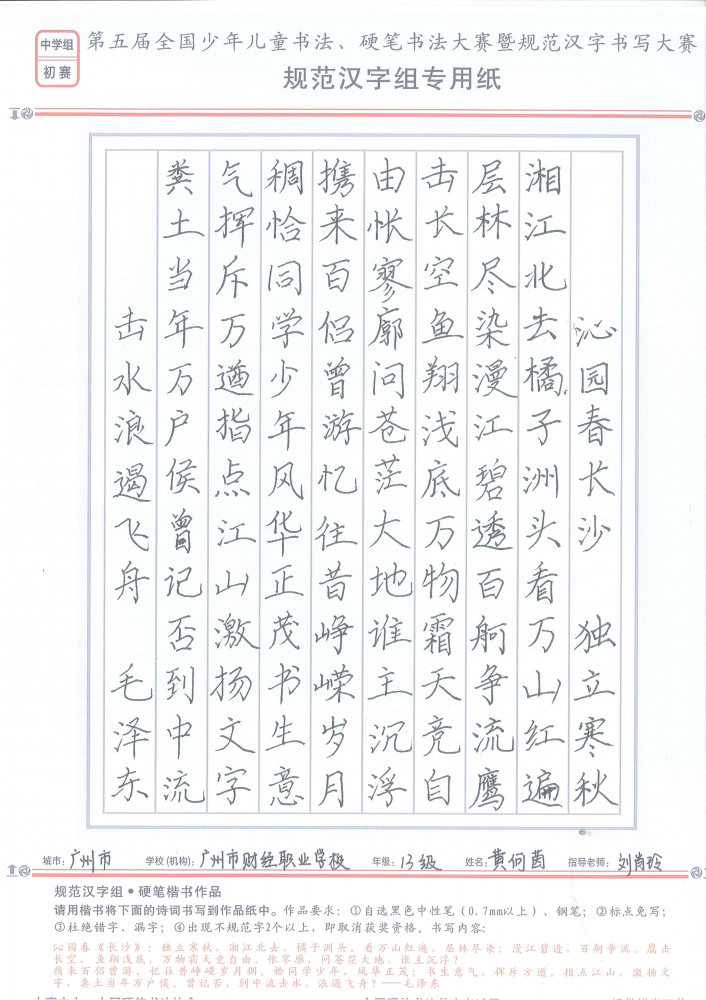 中学组
初赛
第五届全国少年儿童书法、硬笔书法大赛暨规范汉字书写大赛
规范汉字组专用纸
沁园春长沙 独立寒秋
湘江北去橘子洲头看万山红遍
层林尽染漫江碧透百舸争流鹰
击长空鱼翔浅底万物霜天竞自
由怅寥廓问苍茫大地谁主沉浮
携来百侣曾游忆往昔峥嵘岁月
稠恰同学少年风华正茂书生意
气挥斥万遒指点江山激扬文字
粪土当年万户侯曾记否到中流
击水浪遏飞舟 毛泽东
城市：广州市 学校(机构)：广州市财经职业学校 年级：13级 姓名：黄何茵 指导老师：刘肖玲
规范汉字组·硬笔楷书作品
请用楷书将下面的诗词书写到作品纸中。作品要求：①自选黑色中性笔（0.7mm以上）、钢笔；②标点免写；
③杜绝错字、漏字；④出现不规范字2个以上，即取消获奖资格。书写内容：
沁园春《长沙》：独立寒秋，湘江北去，橘子洲头。看万山红遍，层林尽染；漫江碧透，百舸争流。鹰击
长空，鱼翔浅底，万物霜天竞自由。怅寥廓，问苍茫大地，谁主沉浮？
携来百侣曾游，忆往昔峥嵘岁月稠。恰同学少年，风华正茂；书生意气，挥斥方遒。指点江山，激扬文
字，粪土当年万户侯。曾记否，到中流击水，浪遏飞舟？——毛泽东